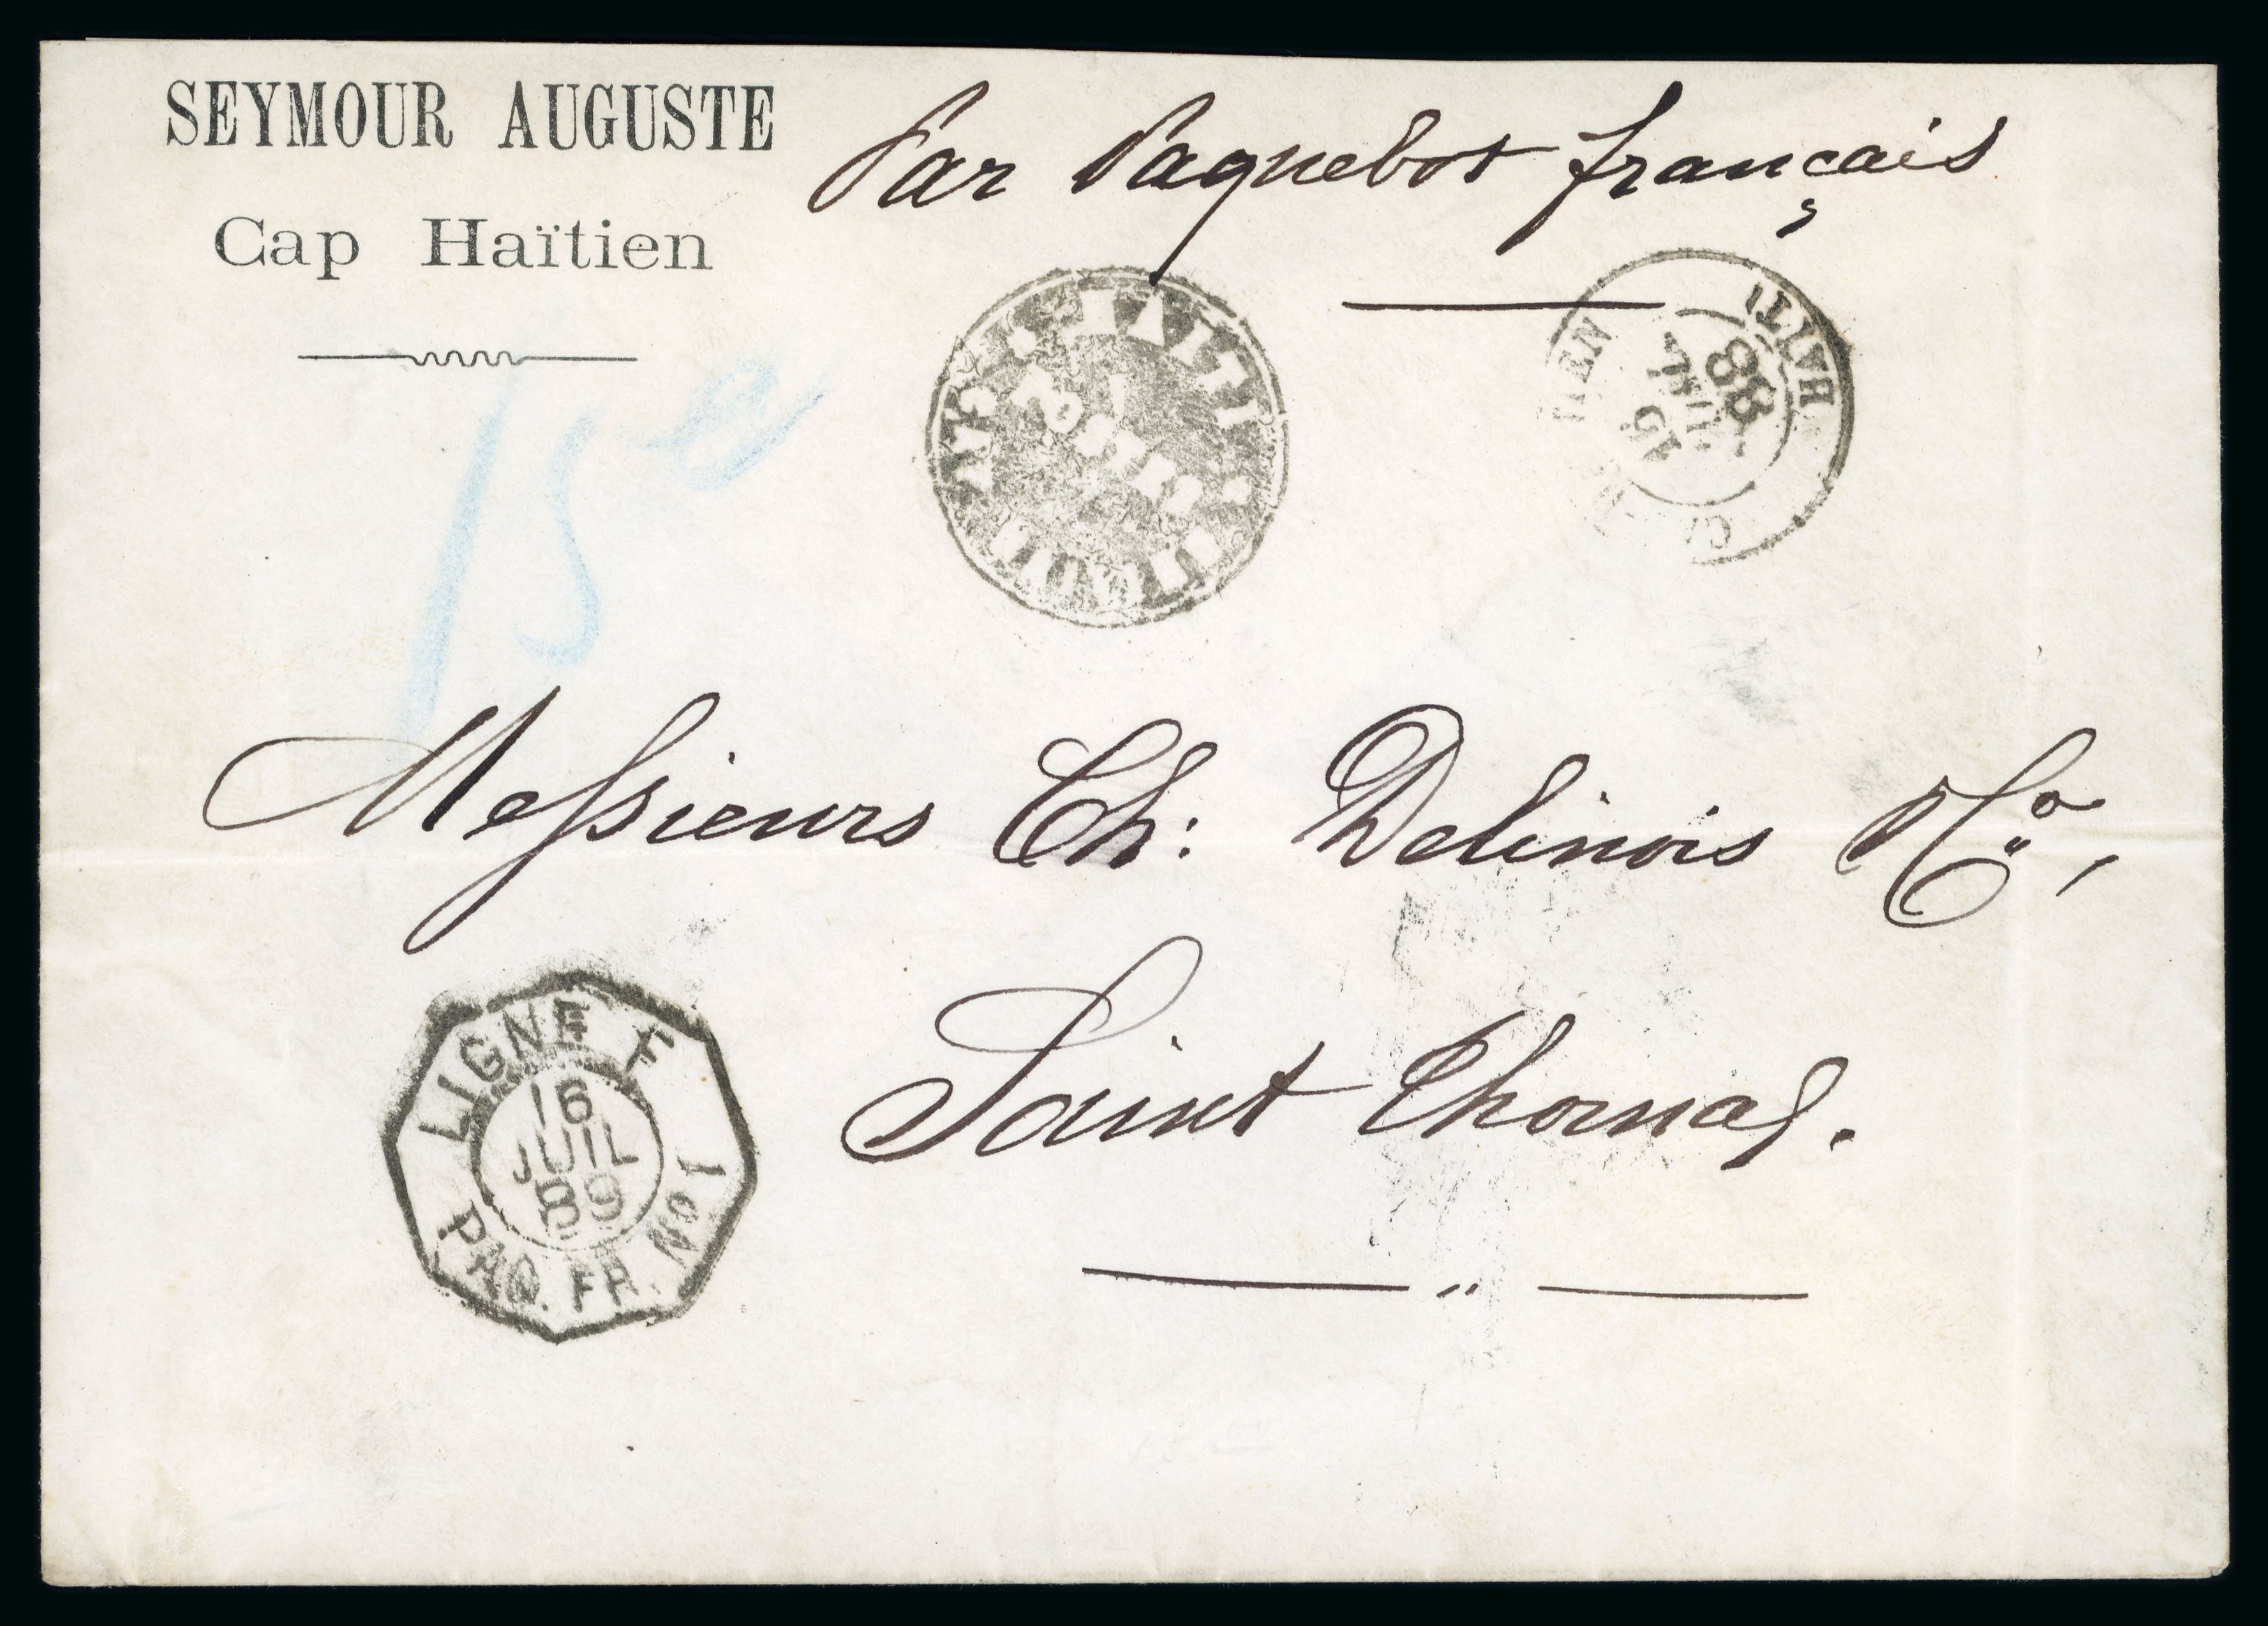 SEYMOUR AUGUSTE
Cap Haïtien
Par Paquebot français
HAITI
15
JUIL
88
15 c
Messieurs Ch: Delinois & Co,
Saint Thomas.
LIGNE F
16
JUIL
89
PAQ. FR. No 1